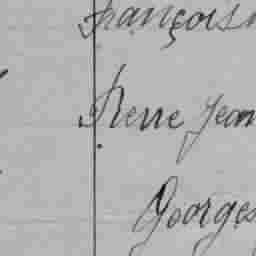 François
Pierre Jean
Georges